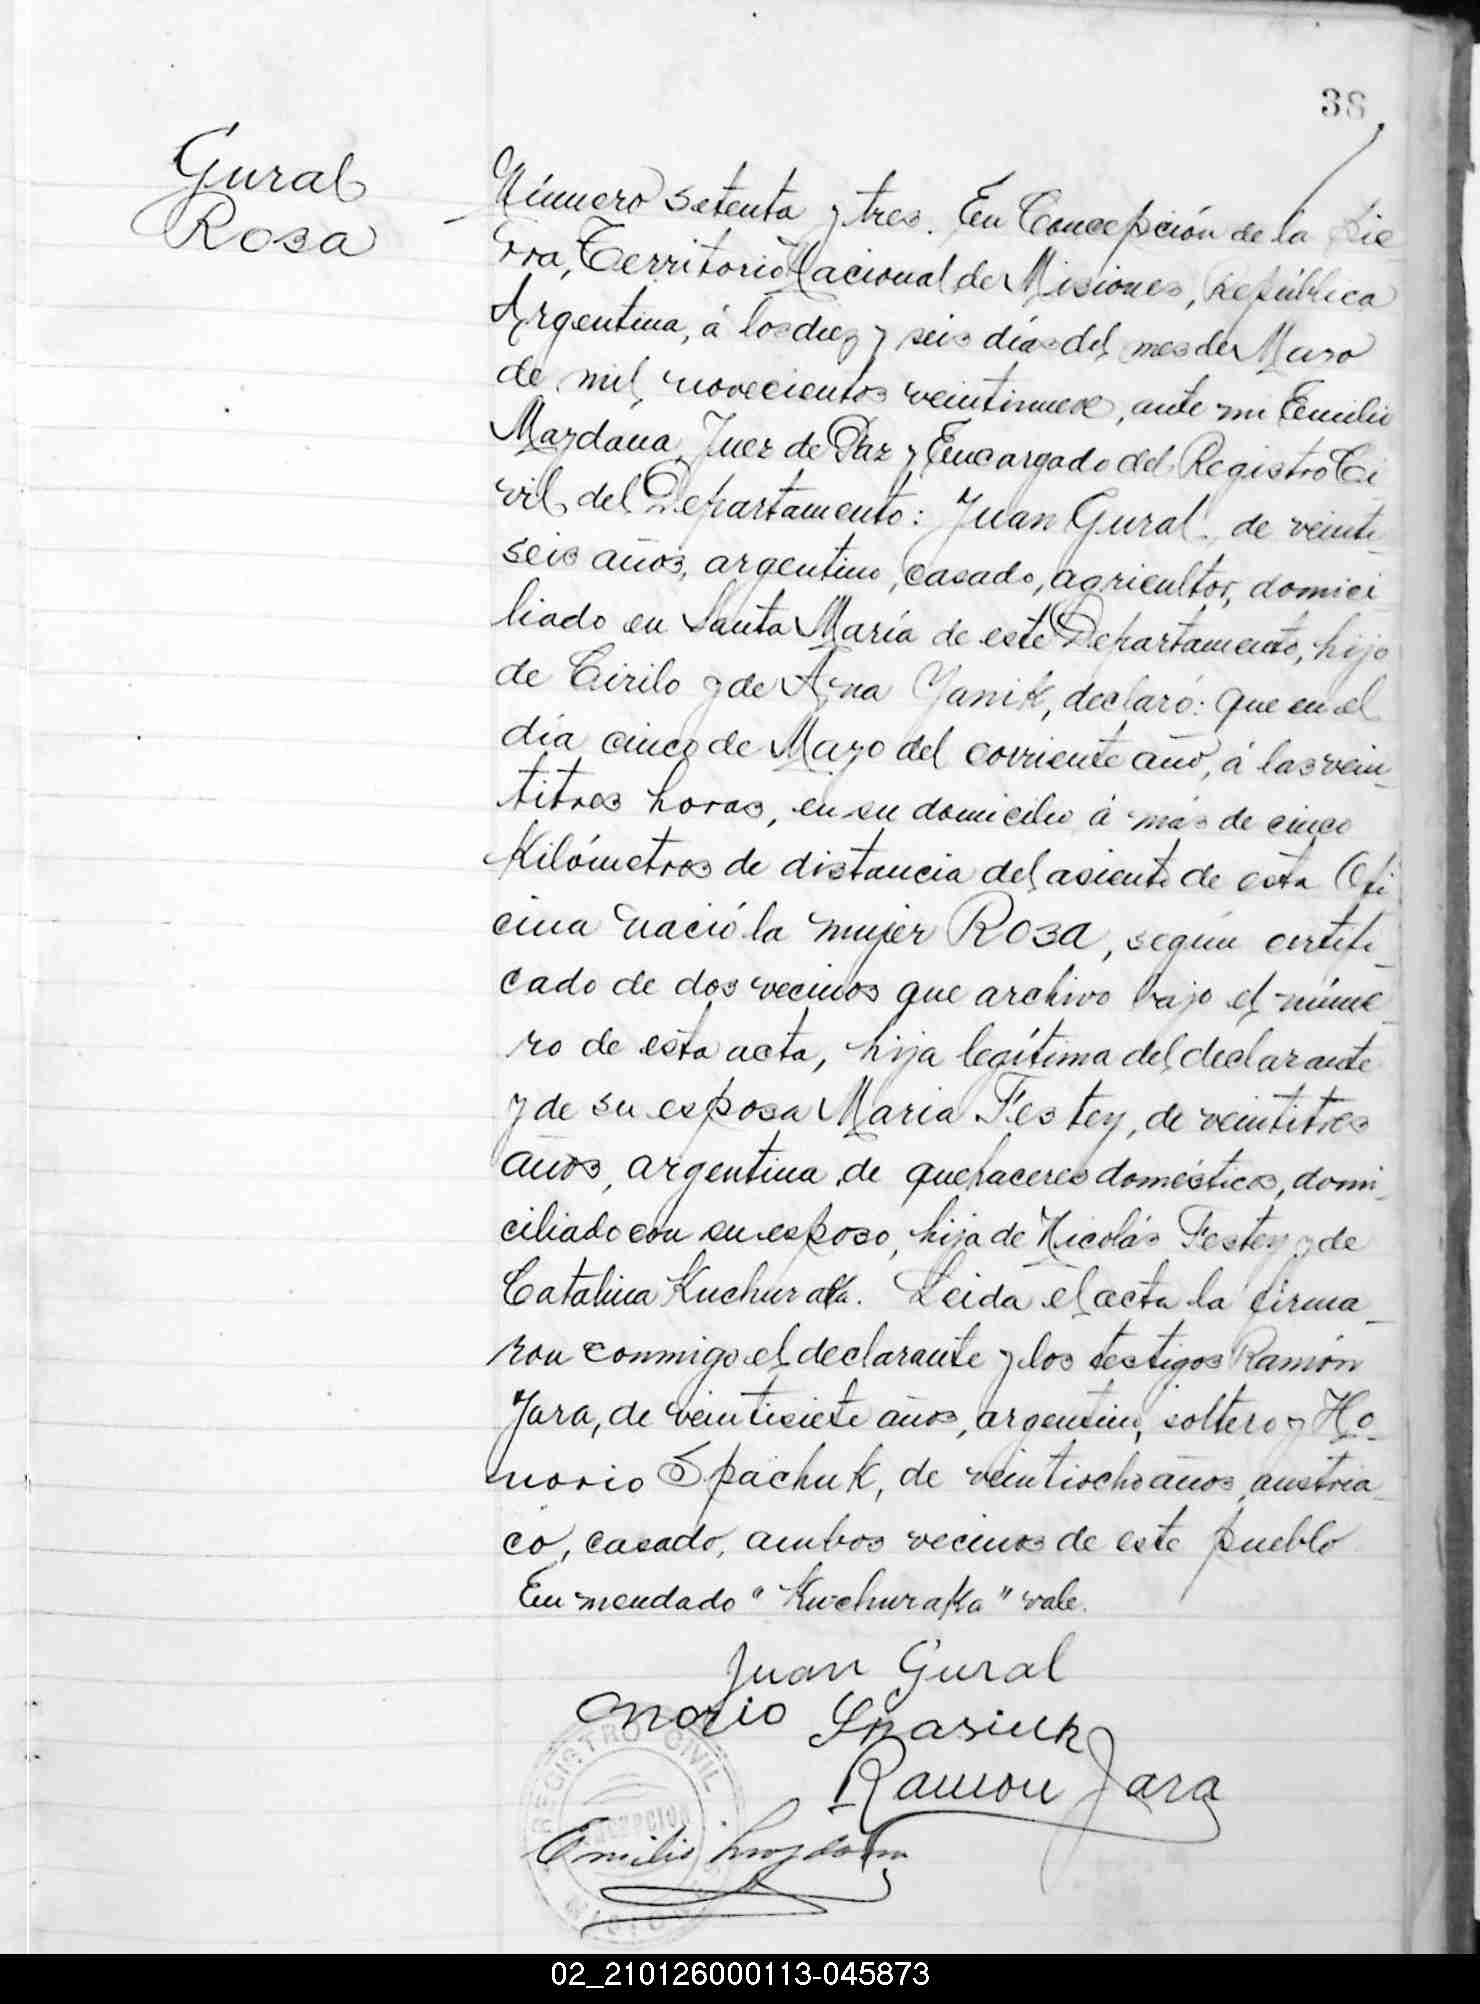 38
Gural
Rosa
Número setenta y tres. En Concepción de la Sie
rra, Territorio Nacional de Misiones, República
Argentina, á los diez y seis días del mes de Mayo
de mil novecientos veintinueve, ante mi Emilio
Mazdana, Juez de Paz y Encargado del Registro Ci
vil del Departamento: Juan Gural, de veinti-
seis años, argentino, casado, agricultor, domici
liado en Santa María de este Departamento, hijo
de Cirilo y de Ana Yanik, declaró: que en el
día cinco de Mayo del corriente año, á las vein-
titres horas, en su domicilio á más de cinco
Kilómetros de distancia del asiento de esta Ofi
cina nació la mujer Rosa, según certifi-
cado de dos vecinos que archivo bajo el núme-
ro de esta acta, hija legítima del declarante
y de su esposa Maria Festey, de veintitres
años, argentina, de quehaceres domésticos, domi-
ciliado con su esposo, hija de Nicolás Festey y de
Catalina Kuchuraka. Leida el acta la firma-
ron conmigo el declarante y los testigos Ramón
Jara, de veintisiete años, argentino, soltero y Ho-
norio Spachuk, de veintiocho años, austria-
co, casado, ambos vecinos de este pueblo
Enmendado "Kuchuraka" vale.
Juan Gural
Onorio Spasiuk
Ramon Jara
REGISTRO CIVIL
CONCEPCION
Emilio
02_210126000113-045873